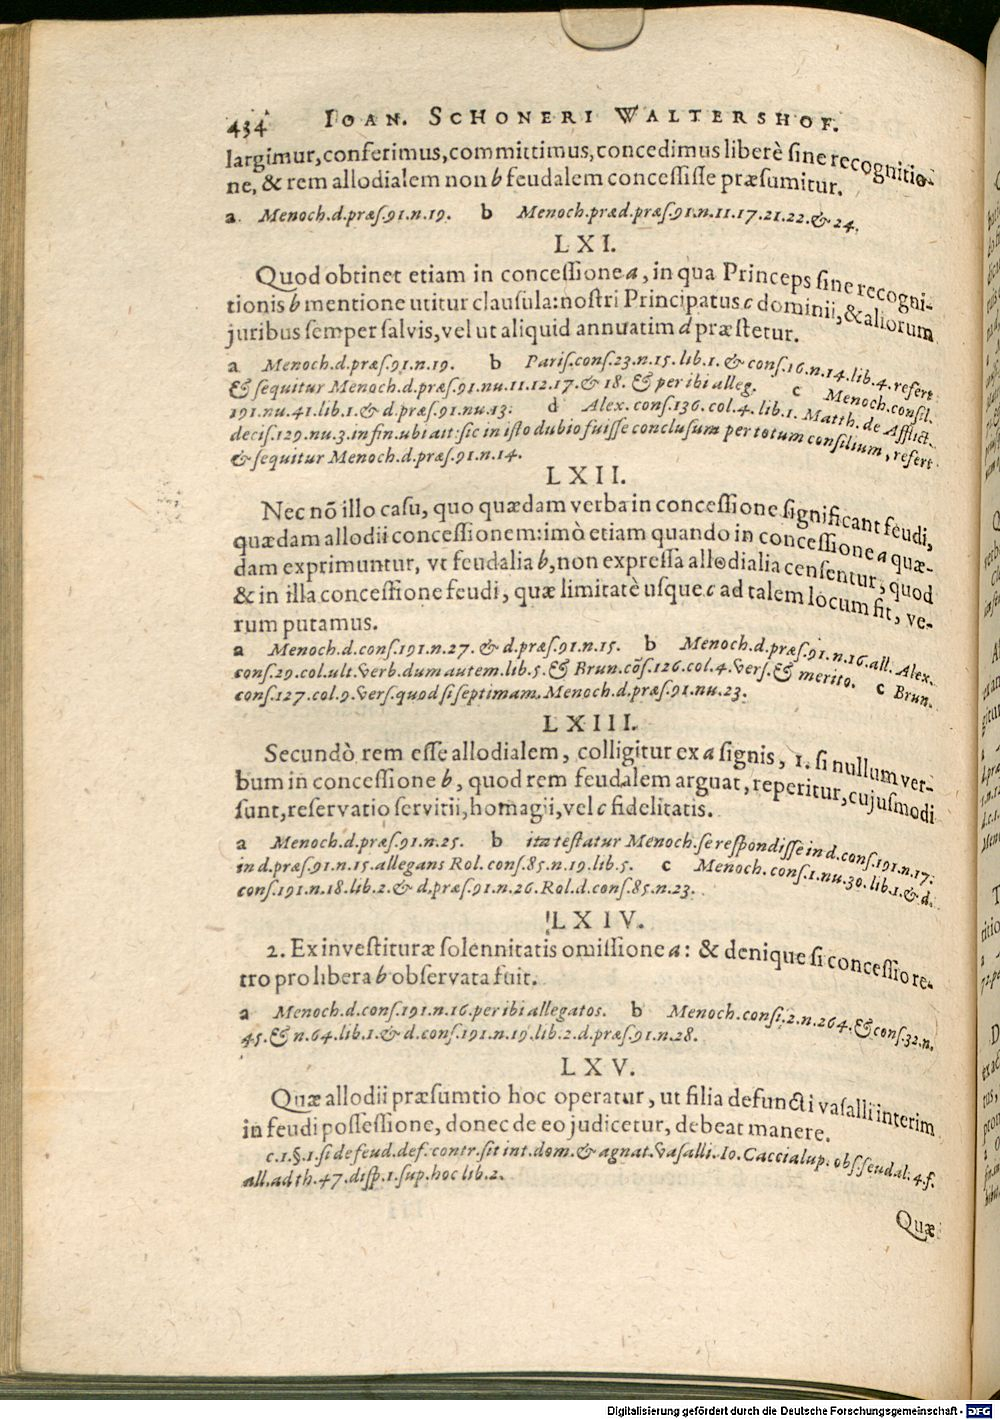 434 IOAN. SCHONERI WALTERSHOF.
largimur, conferimus, committimus, concedimus liberè ſine recognitio-
ne, & rem allodialem non b feudalem conceſſiſſe præſumitur.
a Menoch.d.præſ.91.n.19. b Menoch.præd.præſ.91.n.11.17.21.22.& 24.
LXI.
Quod obtinet etiam in conceſſione a, in qua Princeps ſine recogni-
tionis b mentione utitur clauſula: noſtri Principatus c dominii, & aliorum
juribus ſemper ſalvis, vel ut aliquid annuatim d præſtetur.
a Menoch.d.præſ.91.n.19. b Pariſ.conſ.23.n.15.lib.1.& conſ.16.n.14.lib.4.refert
& ſequitur Menoch.d.præſ.91.nu.11.12.17.& 18.& per ibi alleg. c Menoch.conſil.
191.nu.41.lib.1.& d.præſ.91.nu.13. d Alex.conſ.136.col.4.lib.1.Matth.de Afflict.
deciſ.129.nu.3.in fin.ubi ait: ſic in iſto dubio fuiſſe concluſum per totum conſilium, refert
& ſequitur Menoch.d.præſ.91.n.14.
LXII.
Nec nō illo caſu, quo quædam verba in conceſſione ſignificant feudi,
quædam allodii conceſſionem: imò etiam quando in conceſſione a quæ-
dam exprimuntur, vt feudalia b, non expreſſa allodialia cenſentur, quod
& in illa conceſſione feudi, quæ limitatè uſque c ad talem locum fit, ve-
rum putamus.
a Menoch.d.conſ.191.n.27.& d.præſ.91.n.15. b Menoch.d.præſ.91.n.16.all.Alex.
conſ.29.col.ult.verb.dum autem.lib.5.& Brun.cōſ.126.col.4.verſ.& merito. c Brun.
conſ.127.col.9.verſ.quod ſi ſeptimam.Menoch.d.præſ.91.nu.23.
LXIII.
Secundò rem eſſe allodialem, colligitur ex a ſignis, 1. ſi nullum ver-
bum in conceſſione b, quod rem feudalem arguat, reperitur, cujuſmodi
ſunt, reſervatio ſervitii, homagii, vel c fidelitatis.
a Menoch.d.præſ.91.n.25. b ita teſtatur Menoch.ſe reſpondiſſe in d.conſ.191.n.17.
in d.præſ.91.n.15.allegans Rol.conſ.85.n.19.lib.5. c Menoch.conſ.1.nu.30.lib.1.& d.
conſ.191.n.18.lib.2.& d.præſ.91.n.26.Rol.d.conſ.85.n.23.
LXIV.
2. Ex inveſtituræ ſolennitatis omiſſione a: & denique ſi conceſſio re-
tro pro libera b obſervata fuit.
a Menoch.d.conſ.191.n.16.per ibi allegatos. b Menoch.conſi.2.n.264.& conſ.32.n.
45.& n.64.lib.1.& d.conſ.191.n.19.lib.2.d.præſ.91.n.28.
LXV.
Quæ allodii præſumtio hoc operatur, ut filia defuncti vaſalli interim
in feudi poſſeſſione, donec de eo judicetur, debeat manere.
c.1.§.1.ſi de feud.def.contr.ſit int.dom.& agnat.vaſalli.Io.Caccialup.obſ.feudal.4.f.
all.ad th.47.diſp.1.ſup.hoc lib.2.
Quæ
Digitalisierung gefördert durch die Deutsche Forschungsgemeinschaft - DFG